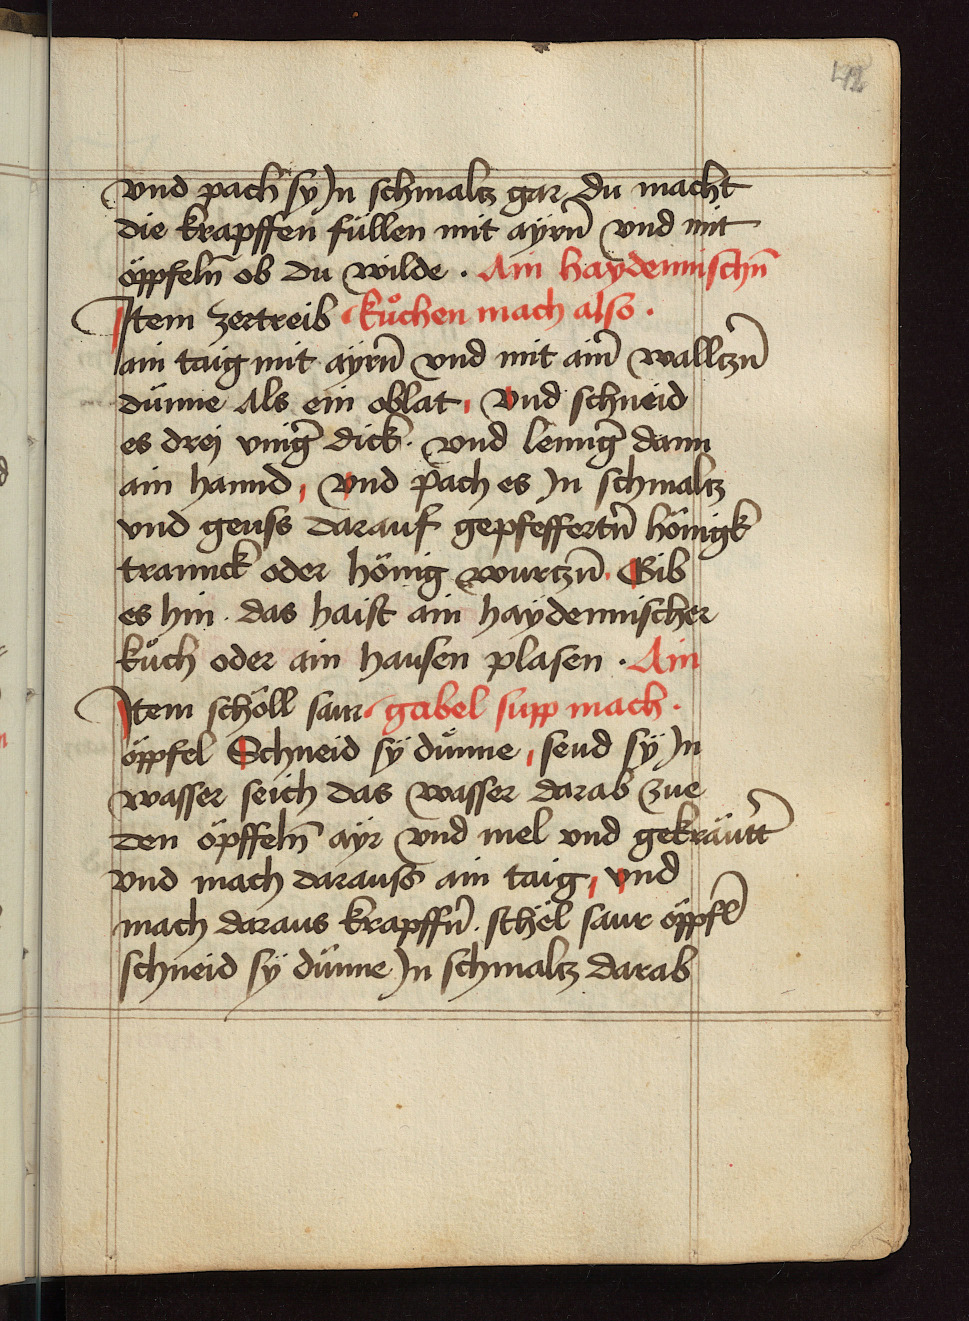 42
vnd pach sy Jn schmaltz gar du macht
die krapffen füllen mit aÿrn̄ vnd mit
öppfeln̄ ob du wilde . Ain haydennischn̄
Item zertreib kůchen mach also .
ain taig mit aÿrn̄ vnd mit ain̄ walltzn̄
dünne Als ein oblat , Vnd schneid
es drej vinger̄ dick . vnd lennger̄ dann
ain hannd , vnd pach es Jn schmaltz
vnd geuss darauf gepfeffertn̄ hönigk
trannck oder hönig wurtzn̄ . Gib
es hin . das haist ain haÿdennischer
kůch oder ain hausen plasen . Ain
Item schöll saur gabel supp mach .
öppfel Schneid sÿ dünne , seud sÿ Jn
wasser seich das wasser darab zue
den öpffeln̄ aÿr vnd mel vnd gekräutt̄
vnd mach darauss ain taig , vnd
mach daraus krapffn̄ . schël saur öppfl̄
schneid sÿ dünne Jn schmaltz darab